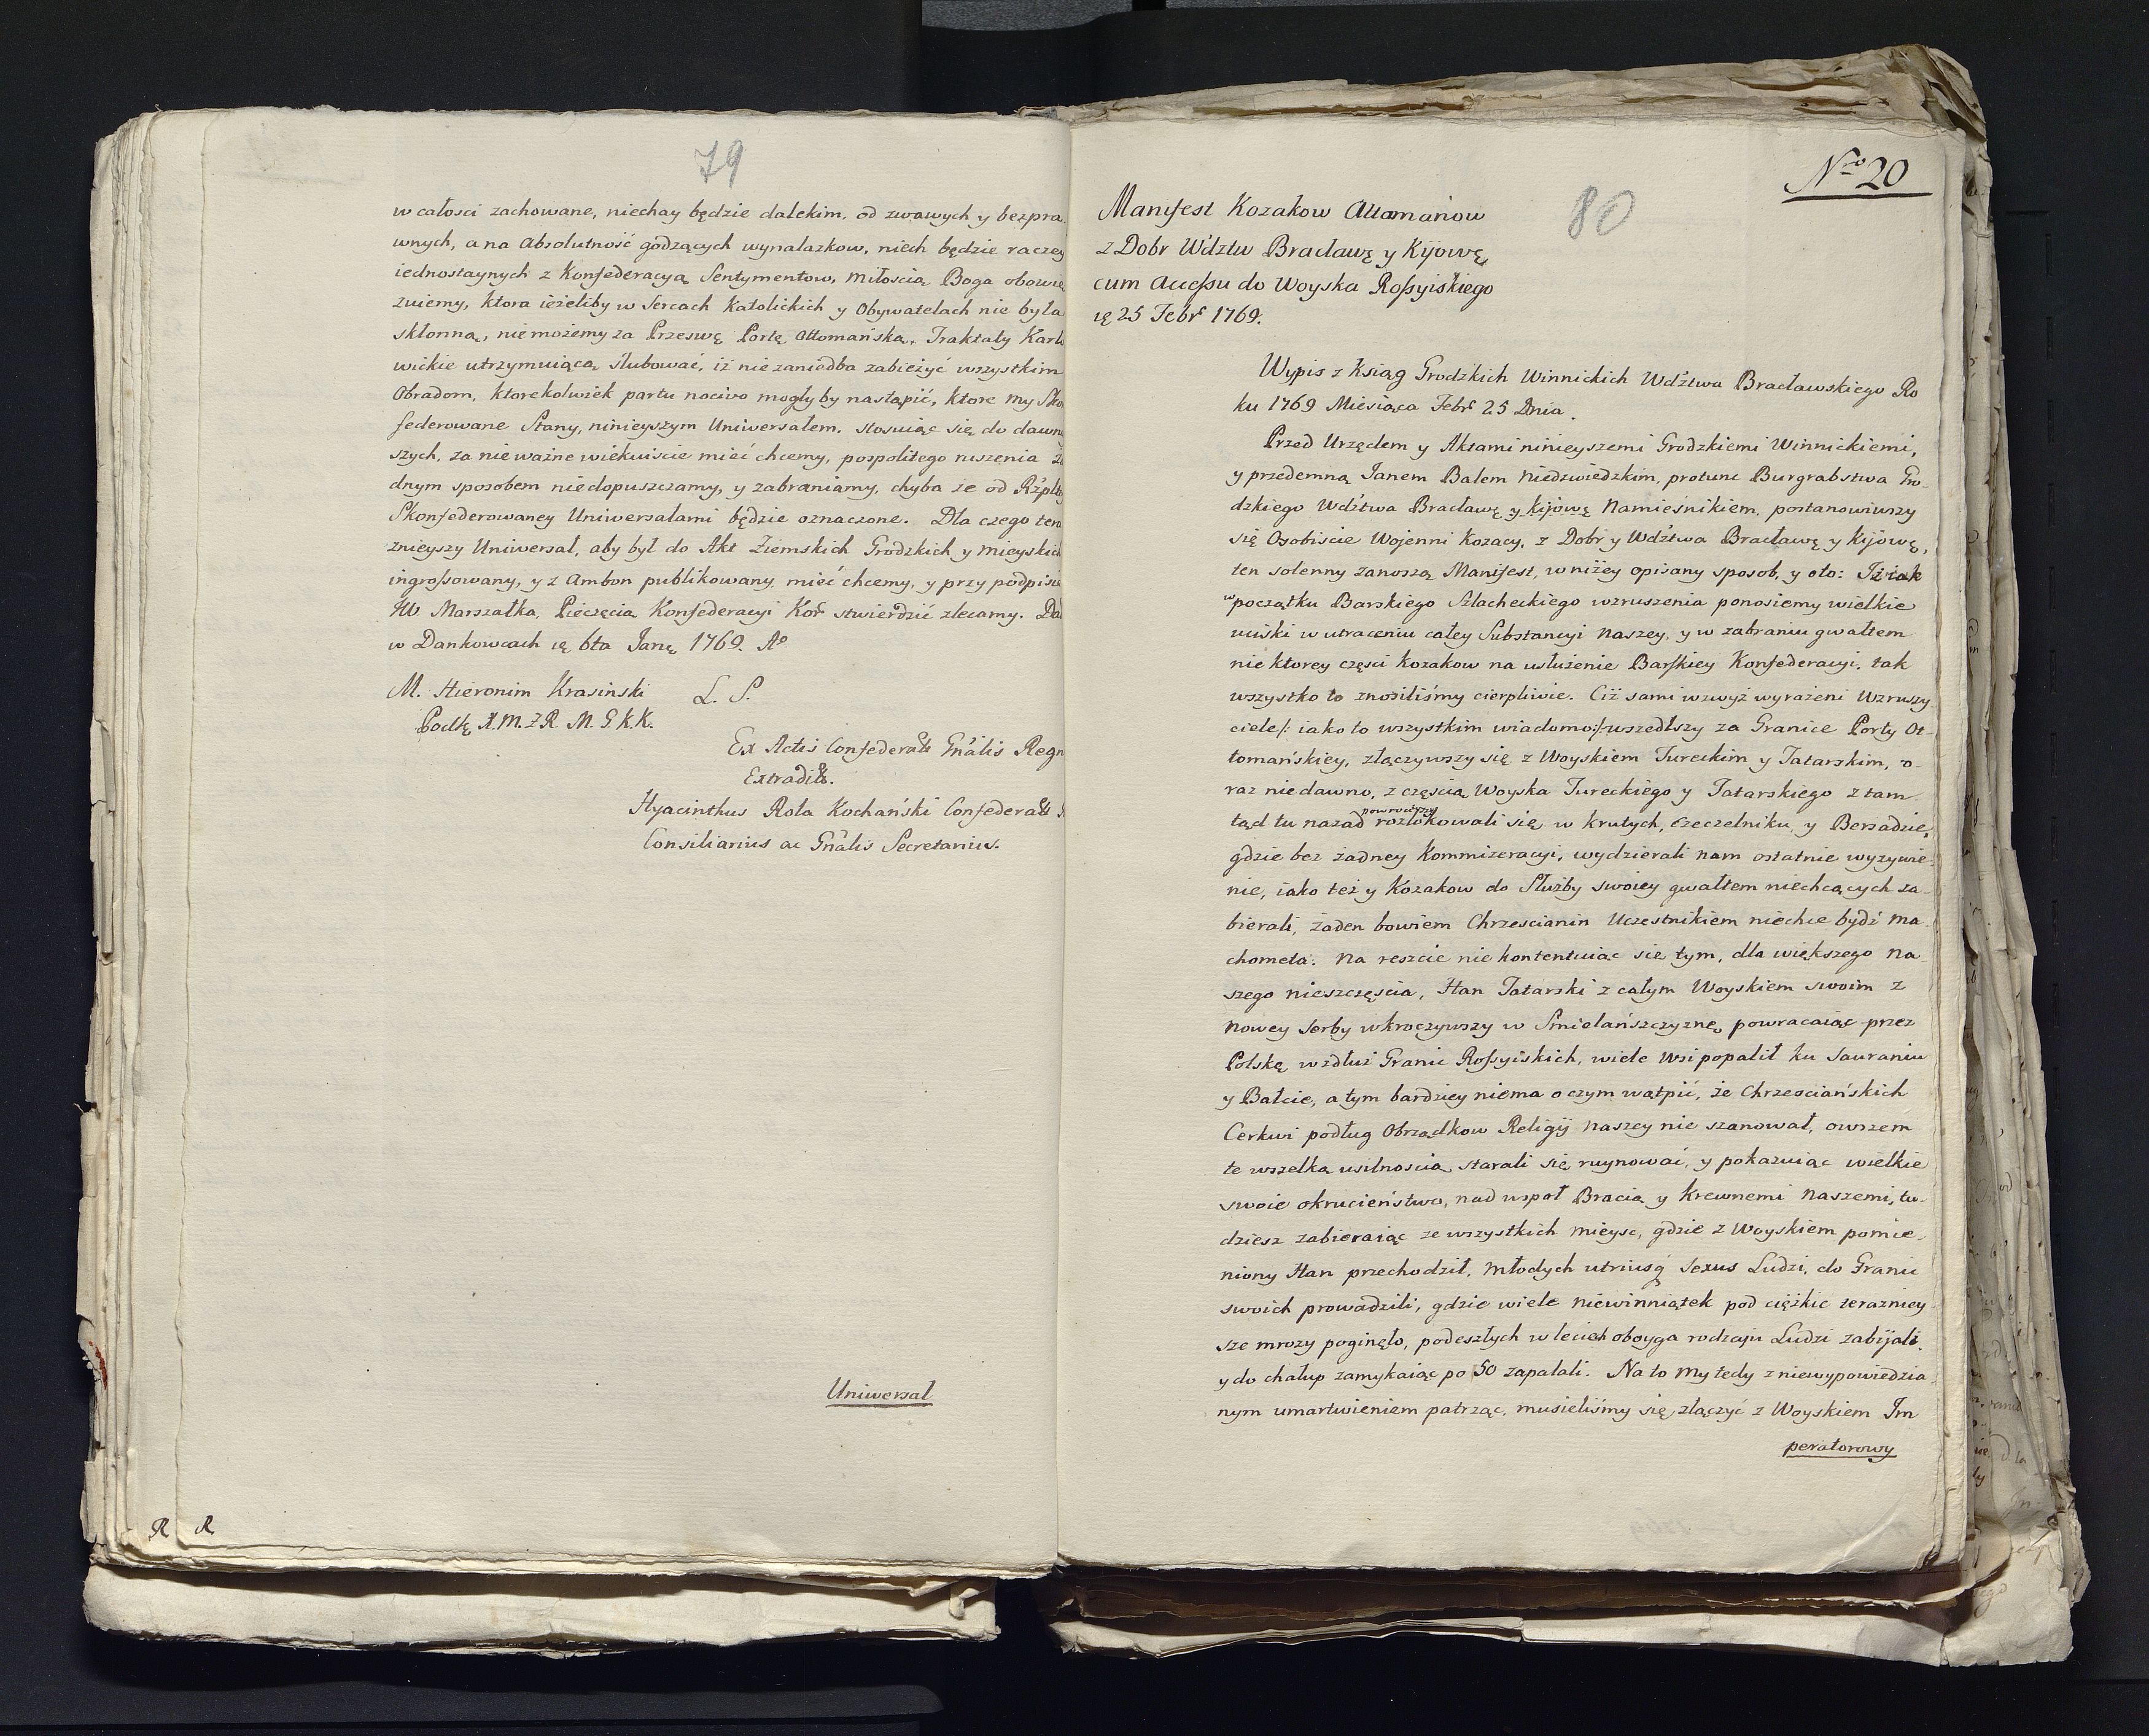 79
w całosci zachowane, niechay będzie dalekim, od zwawych y bezpra
wnych, a na Absolutność godzących wynalazkow, niech będzie raczey
iednostaynych z Konfederacyą Sentymentow, miłoscią Boga obowię
zuiemy, ktora ieżeliby w Sercach Katolickich y Obywatelach nie była
skłonną, niemożemy za Przeswę Portę Ottomańską, Traktaty Karło
wickie utrzymuiącą slubować, iż nie zaniedba zabieżyć wszystkim
Obradom, ktorekolwiek partu nocivo mogłyby nastąpić, ktore my Sko
federowane Stany, ninieyszym Uniwersałem, stosuiąc się do dawni
szych, za nie ważne wiekuiście mieć chcemy, pospolitego ruszenia ża
dnym sposobem niedopuszczamy, y zabraniamy, chyba że od Rzplty
Skonfederowaney Uniwersałami będzie oznaczone. Dla czego tera
znieyszy Uniwersał, aby był do Akt Ziemskich Grodzkich y mieyskich
ingrossowany, y z Ambon publikowany mieć chcemy, y przy podpisie
JW Marszałka, Pieczęcią Konfederacyi Kor stwierdzić zlecamy. Dat
w Dankowcach ię 6ta Janę 1769. Ao
M. Hieronim Krasinski L. S
Podkę R.M.Z.R. M. G. K. K.
Ex Actis Confederatt Gnalis Regn
Extraditt.
Hyacinthus Rola Kochański Confederatt
Consiliarius ac Gnalis Secretarius.
Uniwersał
R R
Nro 20
80
Manifest Kozakow Attamanow
z Dobr Wdztw Bracławę y Kijowę
cum Accessu do Woyska Rossyiskiego
ię 25 Febr 1769.
Wypis z Ksiąg Grodzkich Winnickich Wdztwa Bracławskiego Ro
ku 1769 Miesiąca Febr 25 Dnia.
Przed Urzędem y Aktami ninieyszemi Grodzkiemi Winnickiemi,
y przedemną Janem Balem Niedzwiedzkim, protunc Burgrabstwa Gro-
dzkiego Wdztwa Bracławę y Kijowę Namiesnikiem, postanowiwszy
się Osobiscie Wojenni Kozacy, z Dobr y Wdztwa Bracławę y Kijowę,
ten solenny zanoszą Manifest, w niżey opisany sposob, y oto: Iż iak
w początku Barskiego Szlacheckiego wzruszenia ponosiemy wielkie
uciski w utraceniu całey Substancyi Naszey, y w zabraniu gwałtem
nie ktorey częsci kozakow na usłużenie Barskiey Konfederacyi, tak
wszystko to znosiliśmy cierpliwie. Ciż sami wzwyż wyrażeni Wzruszy
ciele /: iako to wszystkim wiadomo :/ wszedłszy za Granice Porty Ot-
tomańskiey, złączywszy się z Woyskiem Tureckim y Tatarskim, o-
raz niedawno, z częscią Woyska Tureckiego y Tatarskiego z tam
tąd tu nazad powrociwszy rozlokowali się w Krutych, Czeczelniku, y Berszadzie,
gdzie bez żadney Kommizeracyi, wydzierali nam ostatnie wyzywie-
nie, iako też y Kozakow do Służby swoiey gwałtem niechcących za-
bierali, żaden bowiem Chrzescianin Uczestnikiem niechce bydź Ma-
chometa. Na reszcie nie kontentuiąc się tym, dla większego Na-
szego nieszczęscia, Han Tatarski z całym Woyskiem swoim z
Nowey Serby wkroczywszy w Smielańszczyznę, powracaiąc przez
Polskę, wzdłuż Granic Rossyiskich, wiele Wsi popalił ku Sauraniu
y Bałcie, a tym bardziey niema o czym wątpić, że Chrzesciańskich
Cerkwi podług Obrządkow Religij Naszey nie szanował, owszem
te wszelką usilnoscią starali się ruynować, y pokazuiąc wielkie
swoie okrucieństwo, nad wspoł Bracią y Krewnemi Naszemi, tu-
dziesz zabieraiąc ze wszystkich mieysc, gdzie z Woyskiem pomie-
niony Han przechodził, młodych utriusq Sexus Ludzi, do Granic
swoich prowadzili, gdzie wiele niewinniątek pod ciężkie terazniey
sze mrozy poginęło, podeszłych w leciech oboyga rodzaju Ludzi zabijali,
y do chałup zamykaiąc po 50 zapalali. Na to my tedy z niewypowiedzia
nym umartwieniem patrząc, musieliśmy się złączyć z Woyskiem Im
peratorowy